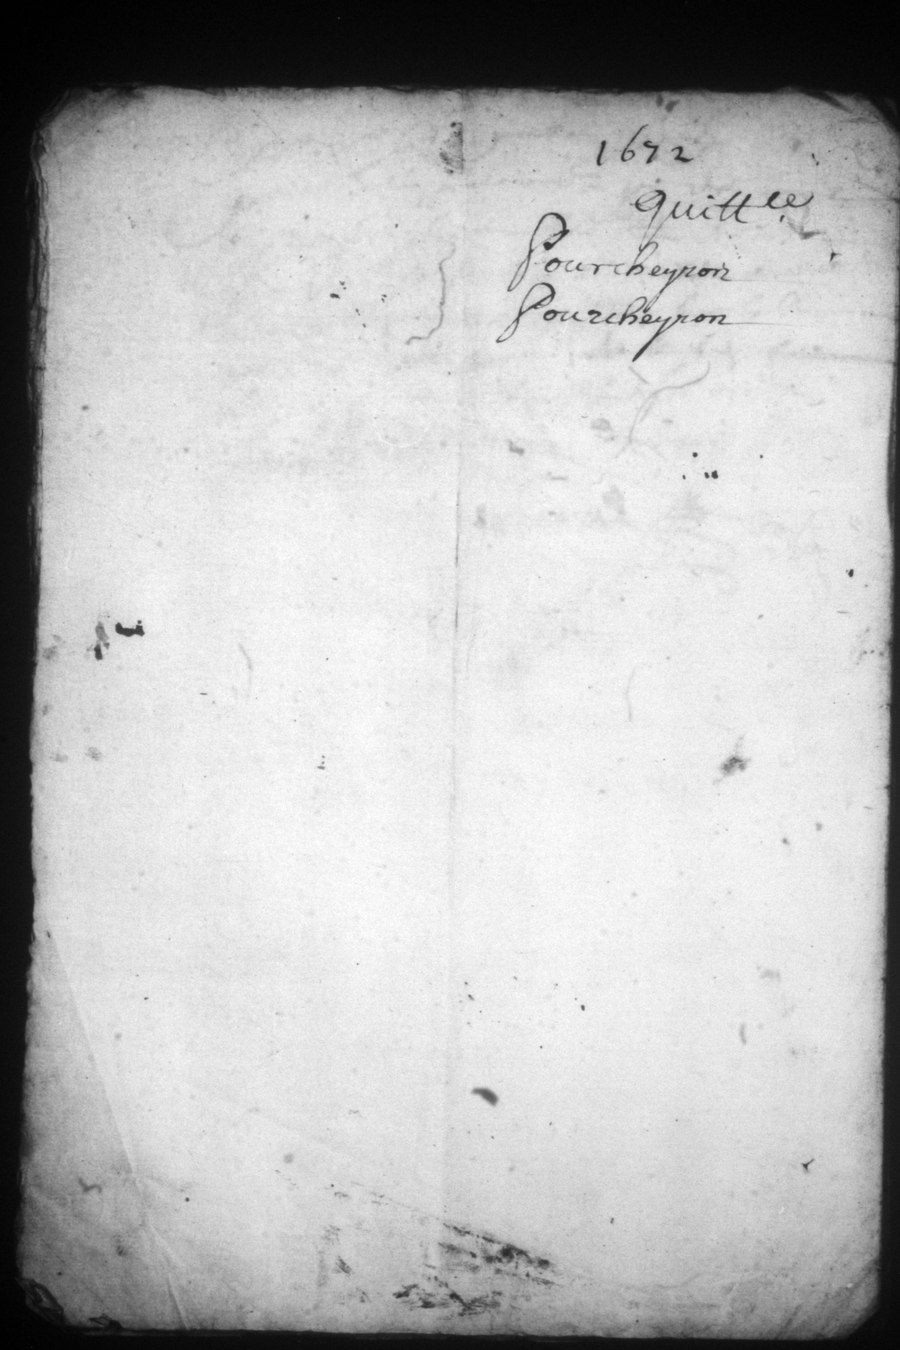 1672
Quittce
Pourcheyron
Pourcheyron